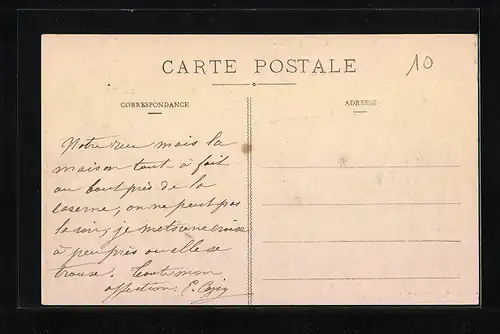 CARTE POSTALE
10
CORRESPONDANCE
ADRESSE
Notre rue mais la
maison tout à fait
au bout près de la
caserne, on ne peut pas
la voir, je mets une croix
à peu près ou elle se
trouve. Toute mon
affection. E.